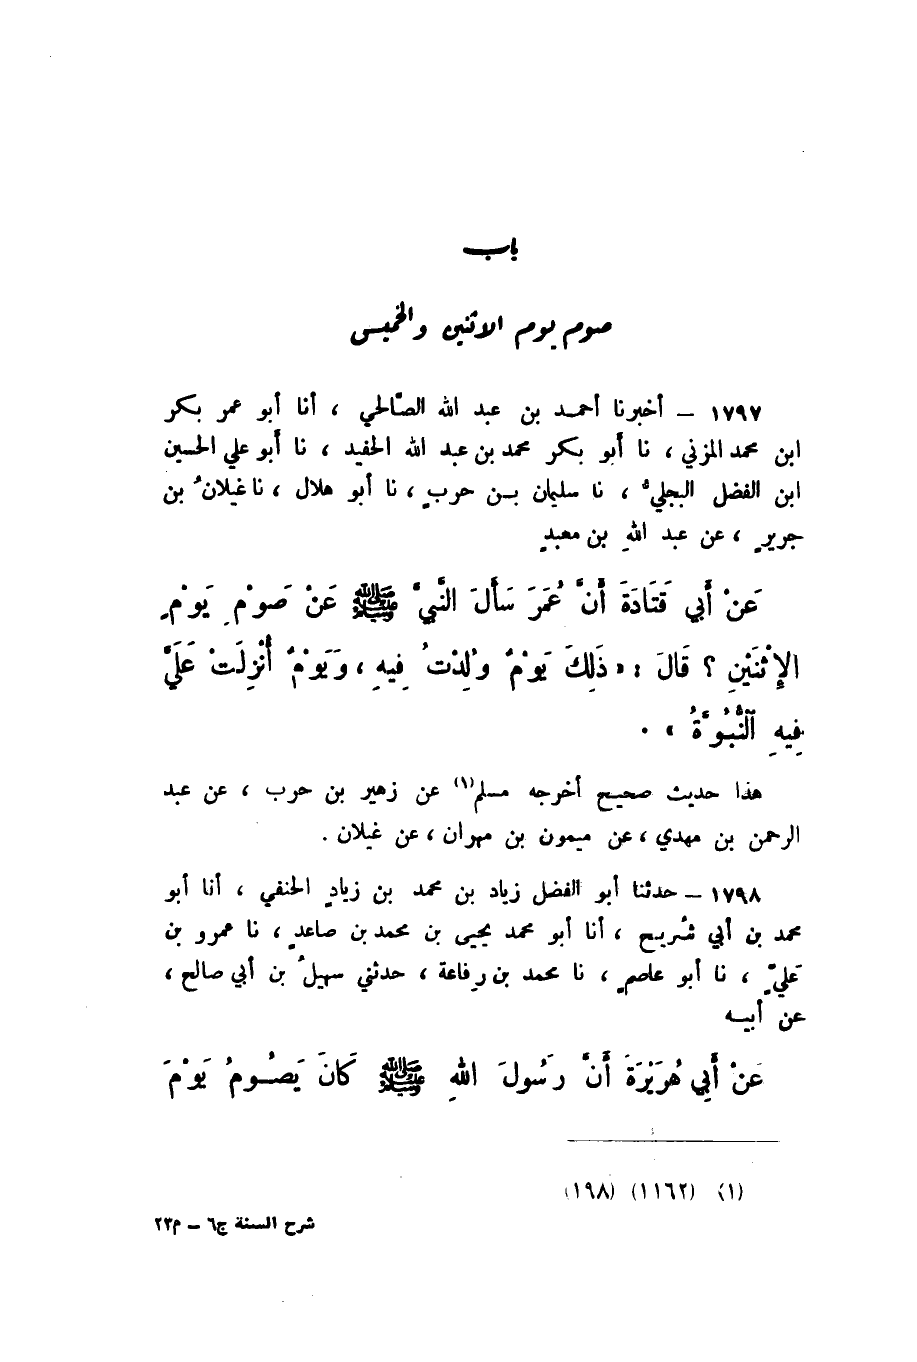 باب
صوم يوم الاثنين والخميس
١٧٩٧ – أخبرنا أحمد بن عبد الله الصّالحي ، أنا أبو عمر بكر
ابن محمد المزني ، نا أبو بكر محمد بن عبد الله الحفيد ، نا أبو علي الحسين
ابن الفضل البجليُّ ، نا سليمان بن حربٍ ، نا أبو هلال ، نا غيلانُ بن
جريرٍ ، عن عبد اللهِ بن معبدٍ
عَنْ أَبي قَتَادَةَ أَنَّ عُمَرَ سَأَلَ النَّبِيَّ ﷺ عَنْ صَوْمِ يَوْمِ
الإِثْنَيْنِ ؟ قَالَ : « ذَلِكَ يَوْمٌ وُلِدْتُ فِيهِ ، وَيَوْمٌ أُنْزِلَتْ عَلَيَّ
فِيهِ النُّبُوَّةُ » .
هذا حديث صحيح أخرجه مسلم(١) عن زهير بن حرب ، عن عبد
الرحمن بن مهدي ، عن ميمون بن مهران ، عن غيلان .
١٧٩٨ – حدثنا أبو الفضل زياد بن محمد بن زيادٍ الحنفي ، أنا أبو
محمد بن أبي شُريح ، أنا أبو محمد يحيى بن محمد بن صاعدٍ ، نا عمرو بن
عَليٍّ ، نا أبو عاصمٍ ، نا محمد بن رِفاعة ، حدثني سهيلُ بن أبي صالح ،
عن أبيه
عَنْ أَبِي هُرَيْرَةَ أَنَّ رَسُولَ اللهِ ﷺ كَانَ يَصُومُ يَوْمَ
(١) (١١٦٢) (١٩٨)
شرح السنة ج٦ – م٢٣